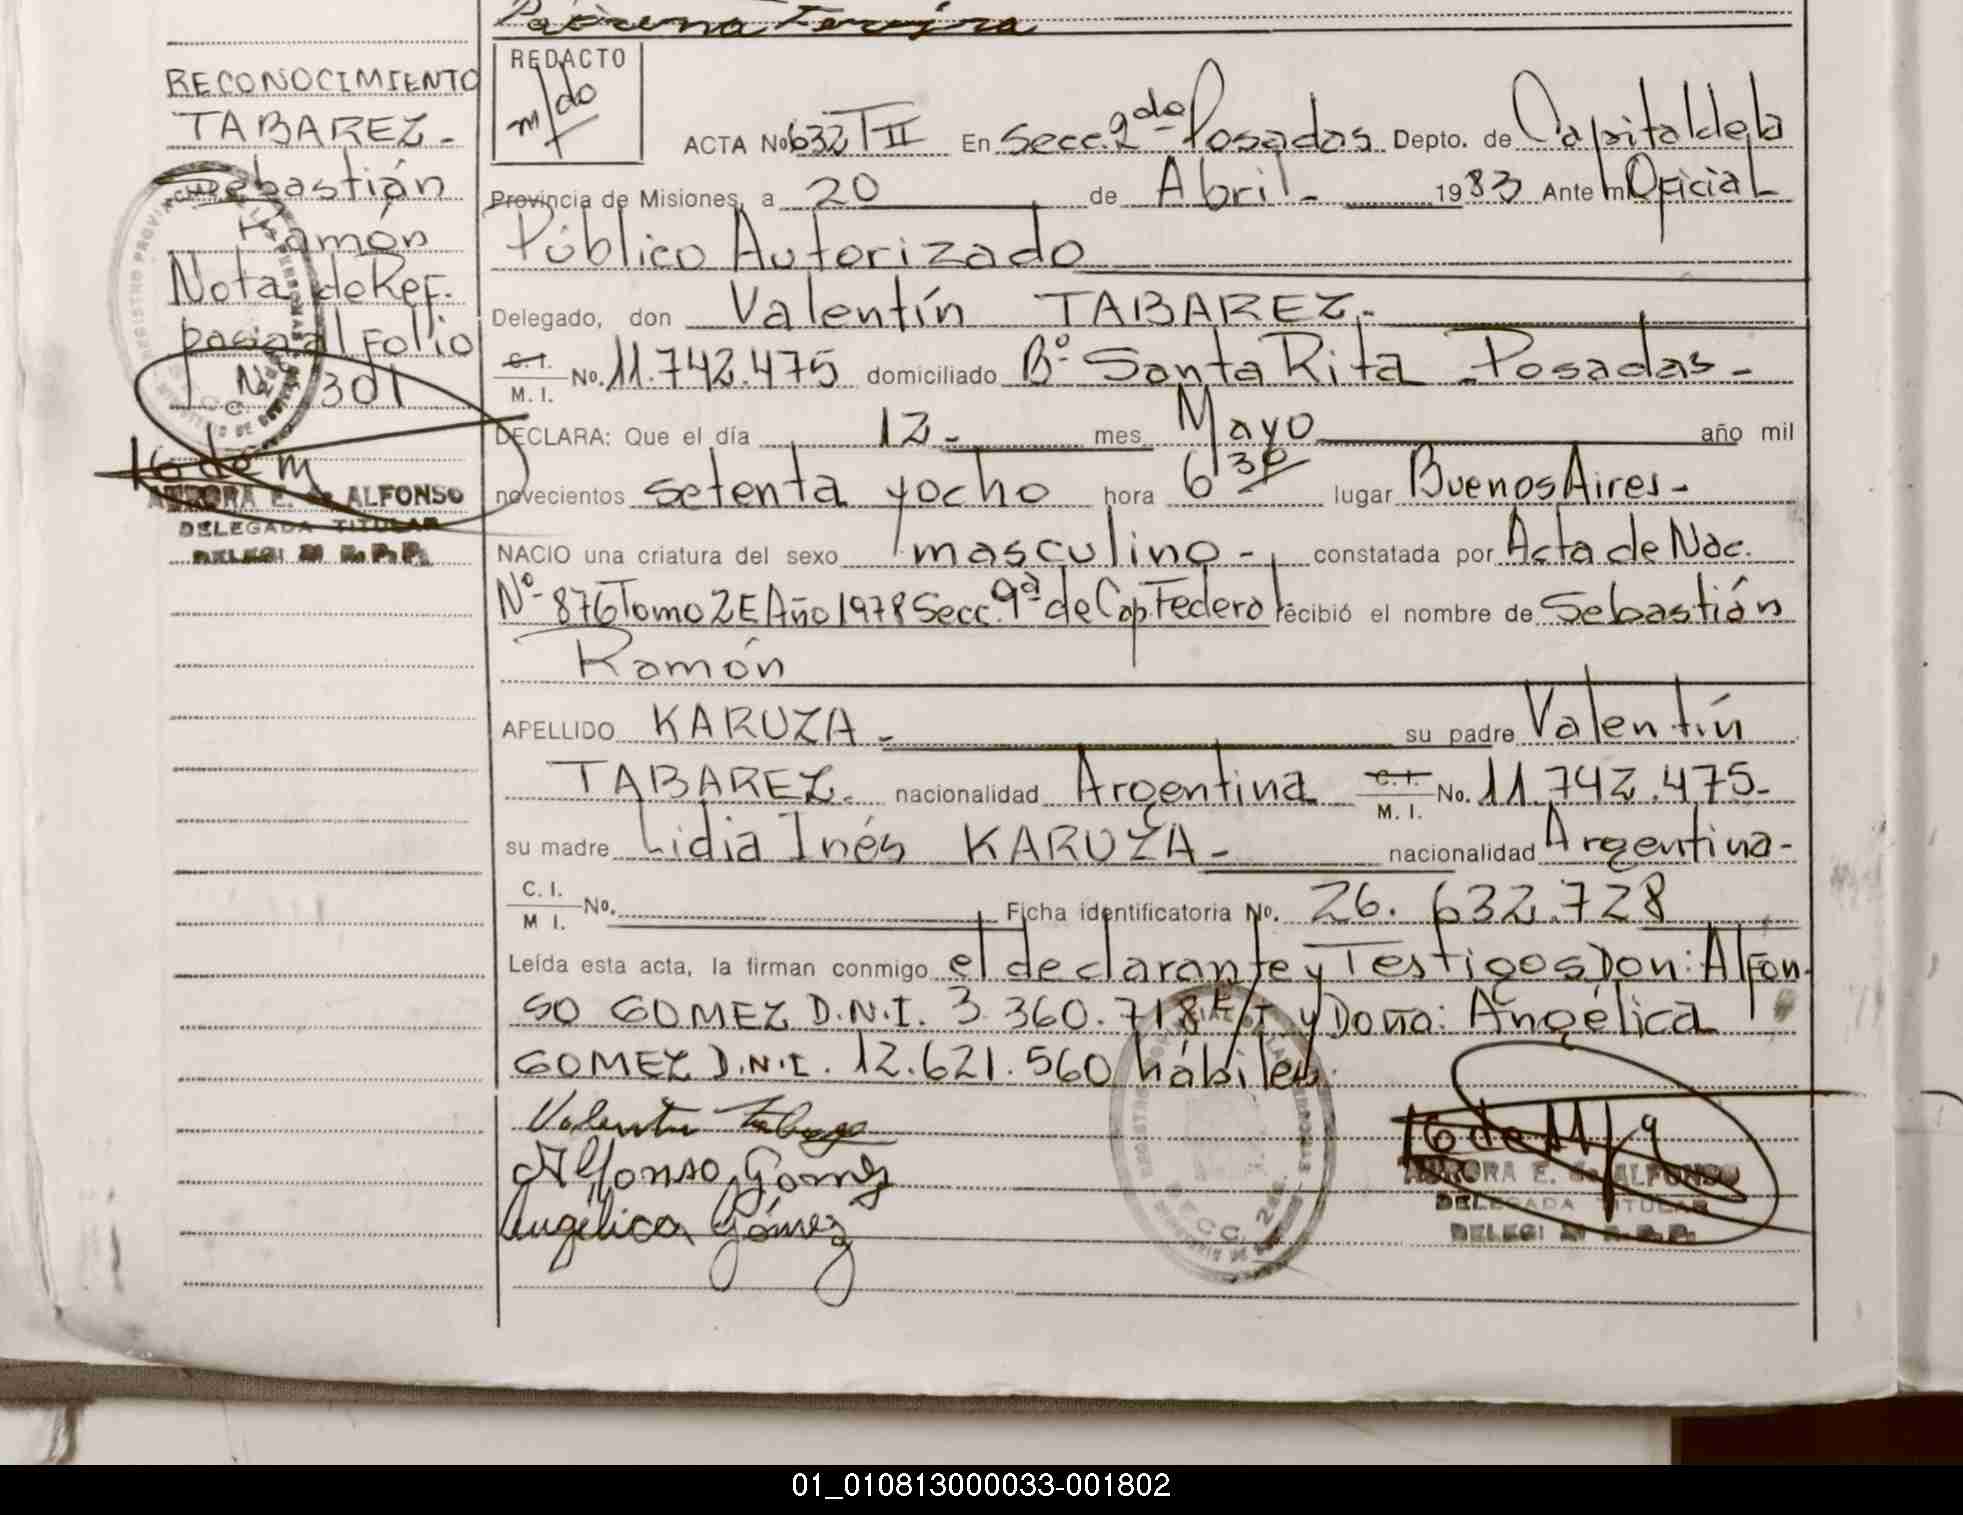 RECONOCIMIENTO
TABAREZ.-
Sebastián
Ramón
Nota de Ref.
pasa al Folio
Nº 301
AURORA E. de ALFONSO
DELEGADA TITULAR
REDACTO
m/do
ACTA No 632 T II En Secc. 2da Posadas Depto. de Capital de la
Provincia de Misiones, a 20 de Abril - 1983 Ante mí Oficial
Público Autorizado
Delegado, don Valentín TABAREZ.-
C.I.
M. I. No. 11.742.475 domiciliado Bº Santa Rita - Posadas -
DECLARA: Que el día 12- mes Mayo año mil
novecientos setenta y ocho hora 6 30 lugar Buenos Aires-
NACIO una criatura del sexo masculino - constatada por Acta de Nac.
Nº 876 Tomo 2E Año 1978 Secc. 9ª de Cap. Federal recibió el nombre de Sebastián
Ramón
APELLIDO KARUZA - su padre Valentín
TABAREZ. nacionalidad Argentina C.I.
M. I. No. 11.742.475-
su madre Lidia Inés KARUZA - nacionalidad Argentina-
C. I.
M I. No. Ficha identificatoria No. 26.632.728
Leída esta acta, la firman conmigo el declarante y Testigos Don: Alfon-
so GOMEZ D.N.I. 3.360.718 E/T y Doña: Angélica
GOMEZ D.N.I. 12.621.560 hábiles.
Alfonso Gomez
Angélica Gómez
AURORA E. de ALFONSO
DELEGADA TITULAR
01_010813000033-001802